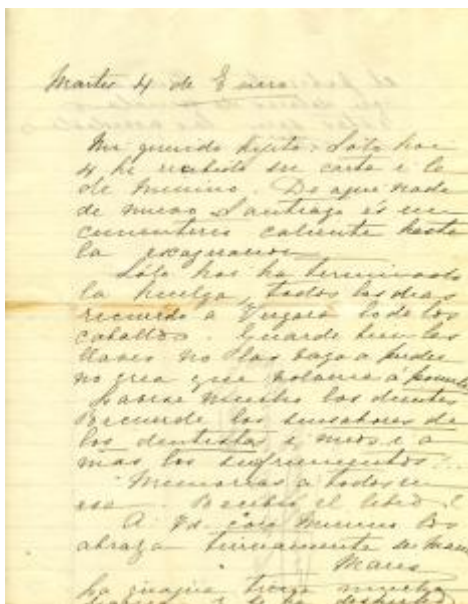 Martes 4 de Enero
Mi querido hijito: Sólo hoi
4 he recibido su carta i la
de Minino. De aqui nada
de nuevo Santiago és un
cementerio caliente hasta
la exajeracion
Sólo hoi ha terminado
la huelga, todos los dias
recuerdo a Vergara lo de los
caballos. Guarde bien las
llaves no las vaya a perder
no crea que volamos a
mucho los dientes
Recuerde los sinsabores de
los dentistas i mios i a
mas los sufrimientos...
Memorias a todos en
esa. Recibió el libro?
A Ud como Minino los
abraza tiernamente su mamá
Maria
La guagua mucho